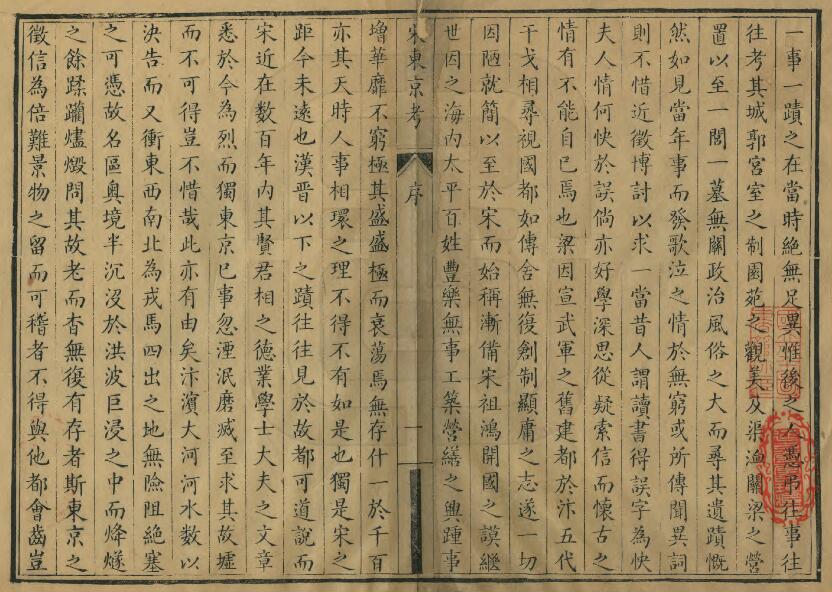 一事一蹟之在當時絶無足異惟後之人憑弔往事往
往考其城郭宮室之制園苑之觀美及渠漁關梁之營
置以至一閭一墓無關政治風俗之大而尋其遺蹟慨
然如見當年事而發歌泣之情於無窮或所傳聞異詞
則不惜近徵博討以求一當昔人謂讀書得誤字為快
夫人情何快於誤倘亦好學深思從疑索信而懷古之
情有不能自已焉也梁因宣武軍之舊建都於汴五代
干戈相尋視國都如傳舍無復創制顯庸之志遂一切
因陋就簡以至於宋而始稱漸備宋祖鴻開國之謨繼
世因之海內太平百姓豐樂無事工築營繕之興踵事
宋東京考 序 一
增華靡不窮極其盛盛極而衰蕩焉無存什一於千百
亦其天時人事相環之理不得不有如是也獨是宋之
距今未遠也漢晉以下之蹟往往見於故都可道說而
宋近在数百年內其賢君相之德業學士大夫之文章
悉於今為烈而獨東京已事忽湮泯磨滅至求其故墟
而不可得豈不惜哉此亦有由矣汴濱大河河水数以
決告而又衝東西南北為戎馬四出之地無險阻絕塞
之可憑故名區奧境半沉沒於洪波巨浸之中而烽燧
之餘蹂躪燼燬問其故老而杳無復有存者斯東京之
徵信為倍難景物之留而可稽者不得與他都會齒豈